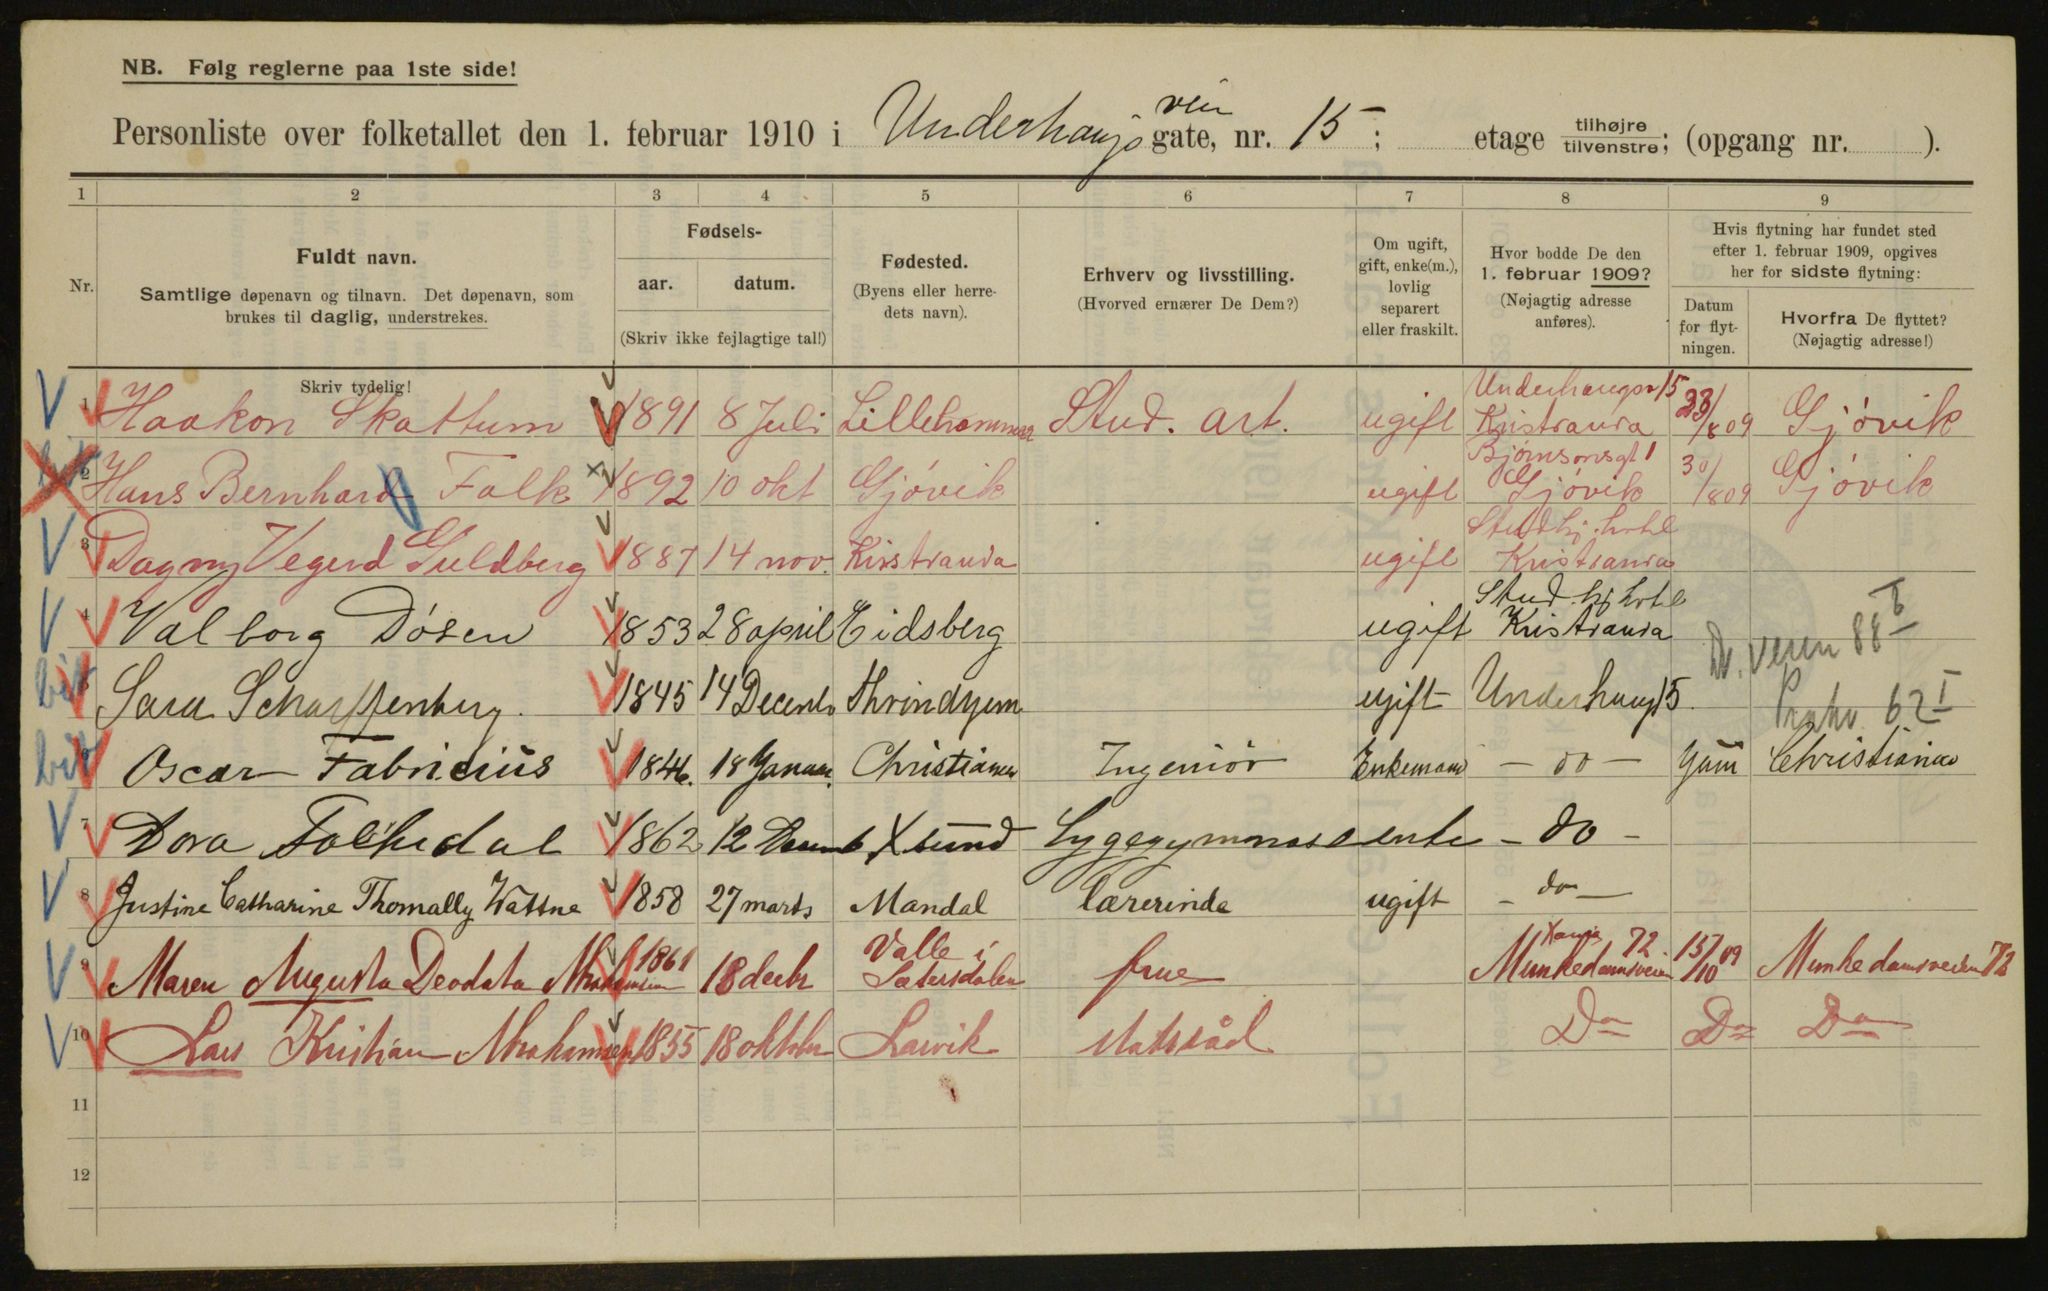 NB. Følg reglerne paa 1ste side!
Personliste over folketallet den 1. februar 1910 i Underhaugs vein gate, nr. 15; etage tilhøjre tilvenstre; (opgang nr. ).
1 2 3 4 5 6 7 8 9
Nr.
Fuldt navn.
Samtlige døpenavn og tilnavn. Det døpenavn, som
brukes til daglig, understrekes.
Skriv tydelig!
Fødsels-
aar. datum.
(Skriv ikke fejlagtige tal!)
Fødested.
(Byens eller herre-
dets navn).
Erhverv og livsstilling.
(Hvorved ernærer De Dem?)
Om ugift,
gift, enke(m.),
lovlig
separert
eller fraskilt.
Hvor bodde De den
1. februar 1909?
(Nøjagtig adresse
anføres).
Hvis flytning har fundet sted
efter 1. februar 1909, opgives
her for sidste flytning:
Datum
for flyt-
ningen.
Hvorfra De flyttet?
(Nøjagtig adresse!)
1 Haakon Skattum 1891 8 Juli Lillehammer Stud. art. ugift Underhaugsv 15 Kristiania 23/8 09 Gjövik
2 Hans Bernhard Falk 1892 10 okt Gjövik ugift Bjørnsonsgt 1 Gjövik 30/8 09 Gjövik
3 Dagny Vegerd Guldberg 1887 14 nov. Kristiania ugift Studhj. hotel Kristiania
4 Valborg Dösen 1853 28 april Eidsberg ugift Stud. hj hotel Kristiania
Dr. veien 88 b
5 Sara Scharffenberg. 1845 14 Decemb Strindyem ugift Underhaug 15.
62 I
6 Oscar Fabricius 1846. 18 Januar. Christiania Ingeniör Enkemand - do - Juni Christiania
7 Dora Falchedal 1862 12 Decemb Xsund Sygegymnast - do -
8 Justine Catharine Thomally Wattne 1858 27 marts Mandal lærerinde ugift - do -
9 Maren Augusta Deodata Abrahamsen 1861 18 decbr Valle i Sætersdalen frue Xania Munkedamsveien 72 15/10 09 Munkedamsveien 72
10 Lars Kristian Abrahamsen 1855 18 oktober Larvik statsråd Do Do Do
11
12